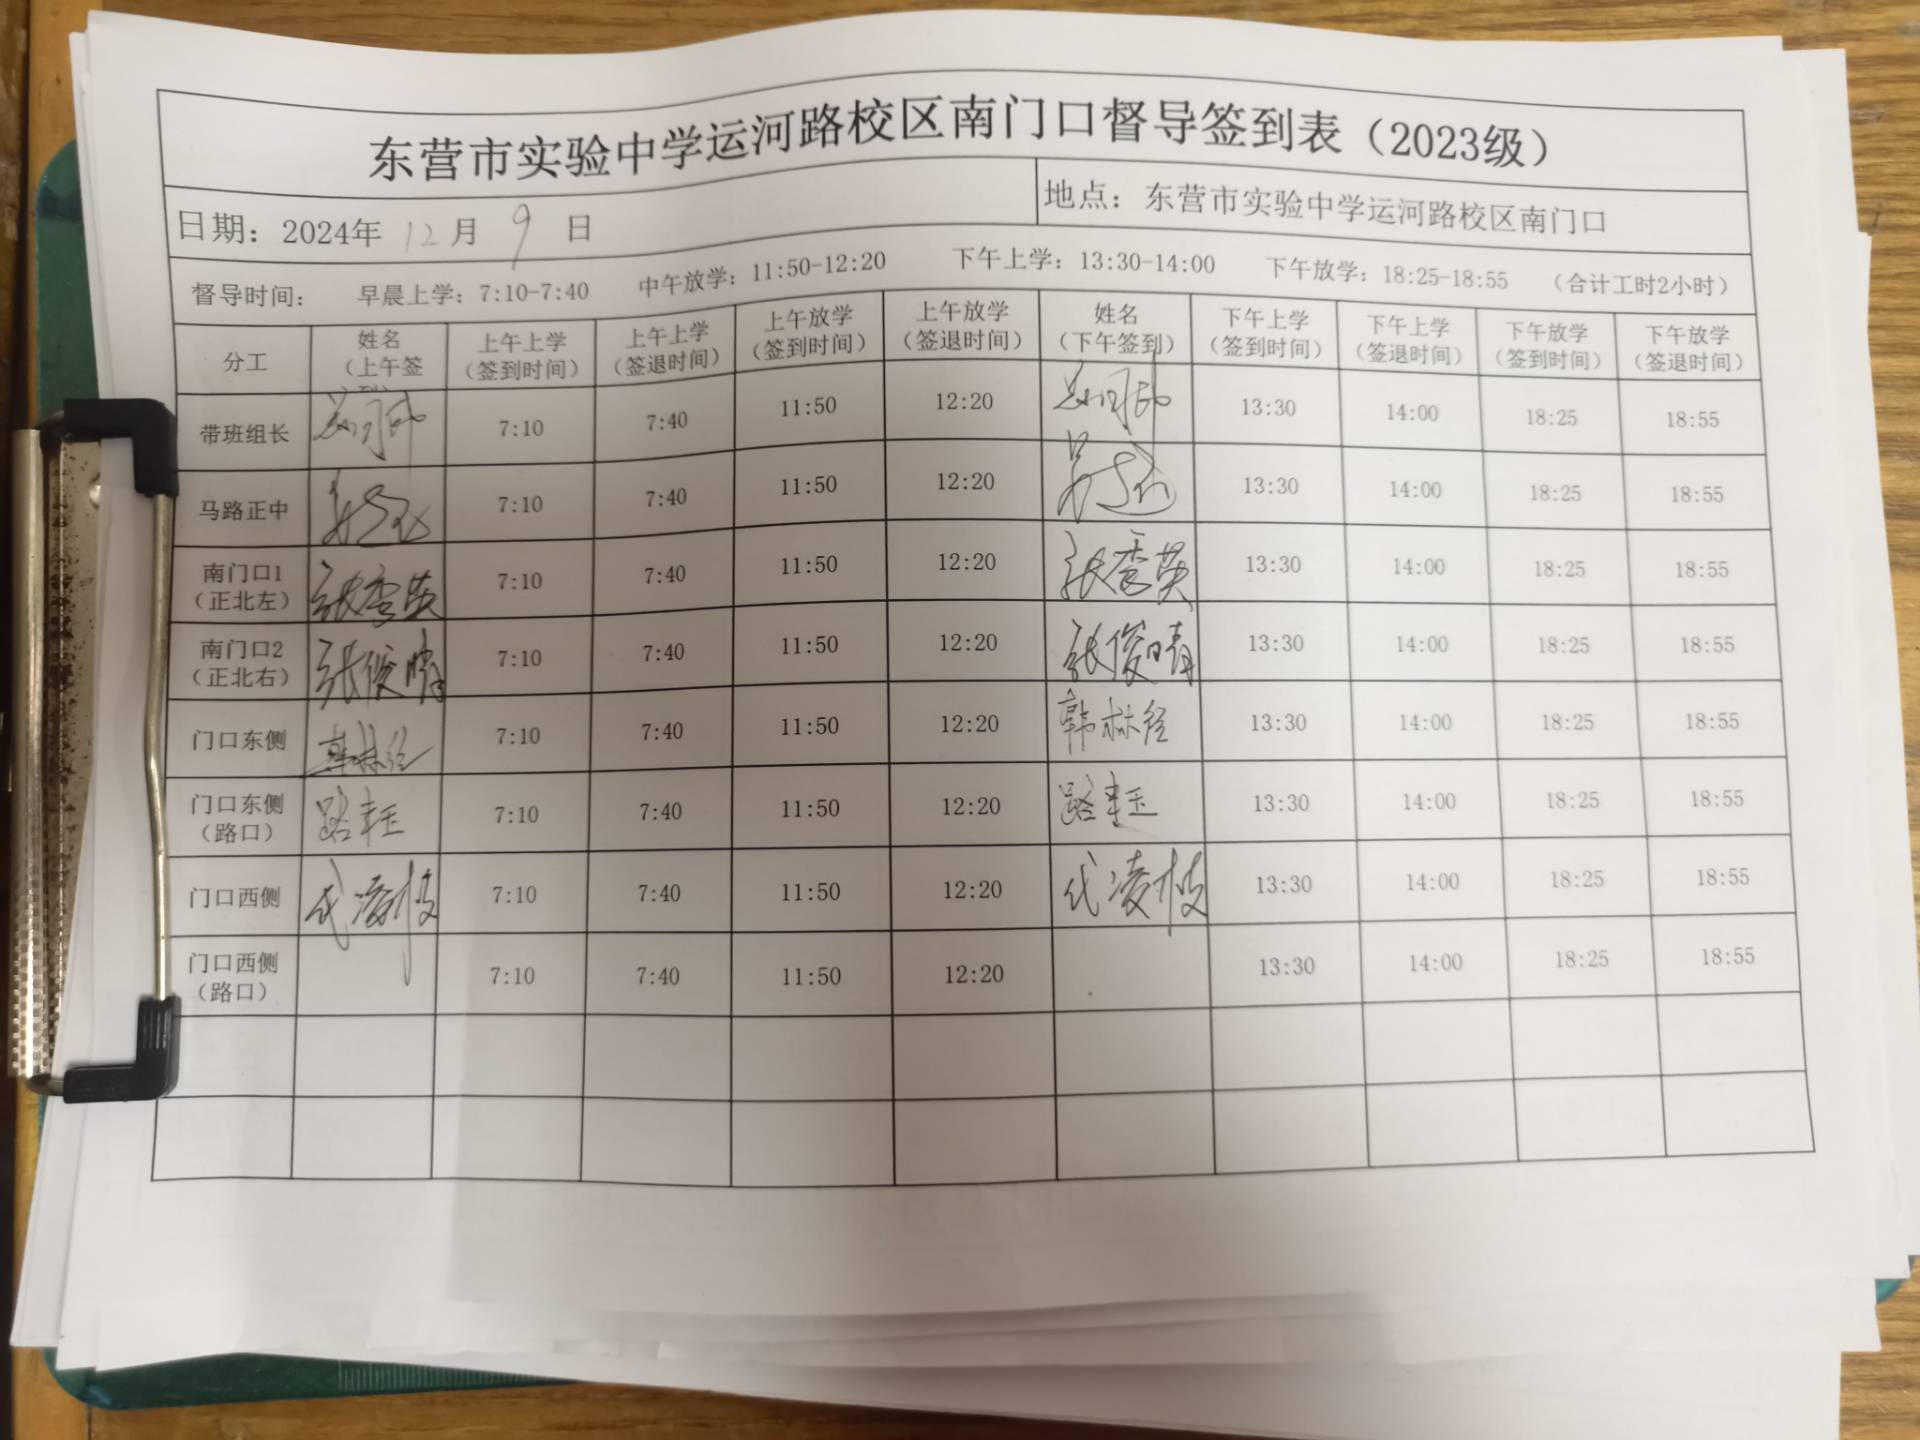 东营市实验中学运河路校区南门口督导签到表（2023级）
日期：2024年 12 月 9 日 地点：东营市实验中学运河路校区南门口
督导时间： 早晨上学：7:10-7:40 中午放学：11:50-12:20 下午上学：13:30-14:00 下午放学：18:25-18:55 （合计工时2小时）
分工 姓名（上午签到） 上午上学（签到时间） 上午上学（签退时间） 上午放学（签到时间） 上午放学（签退时间） 姓名（下午签到） 下午上学（签到时间） 下午上学（签退时间） 下午放学（签到时间） 下午放学（签退时间）
带班组长 7:10 7:40 11:50 12:20 13:30 14:00 18:25 18:55
马路正中 7:10 7:40 11:50 12:20 13:30 14:00 18:25 18:55
南门口1（正北左） 张秀英 7:10 7:40 11:50 12:20 张秀英 13:30 14:00 18:25 18:55
南门口2（正北右） 张俊晴 7:10 7:40 11:50 12:20 张俊晴 13:30 14:00 18:25 18:55
门口东侧 韩林径 7:10 7:40 11:50 12:20 韩林径 13:30 14:00 18:25 18:55
门口东侧（路口） 路玤 7:10 7:40 11:50 12:20 路玤 13:30 14:00 18:25 18:55
门口西侧 代凌枝 7:10 7:40 11:50 12:20 代凌枝 13:30 14:00 18:25 18:55
门口西侧（路口） 7:10 7:40 11:50 12:20 13:30 14:00 18:25 18:55